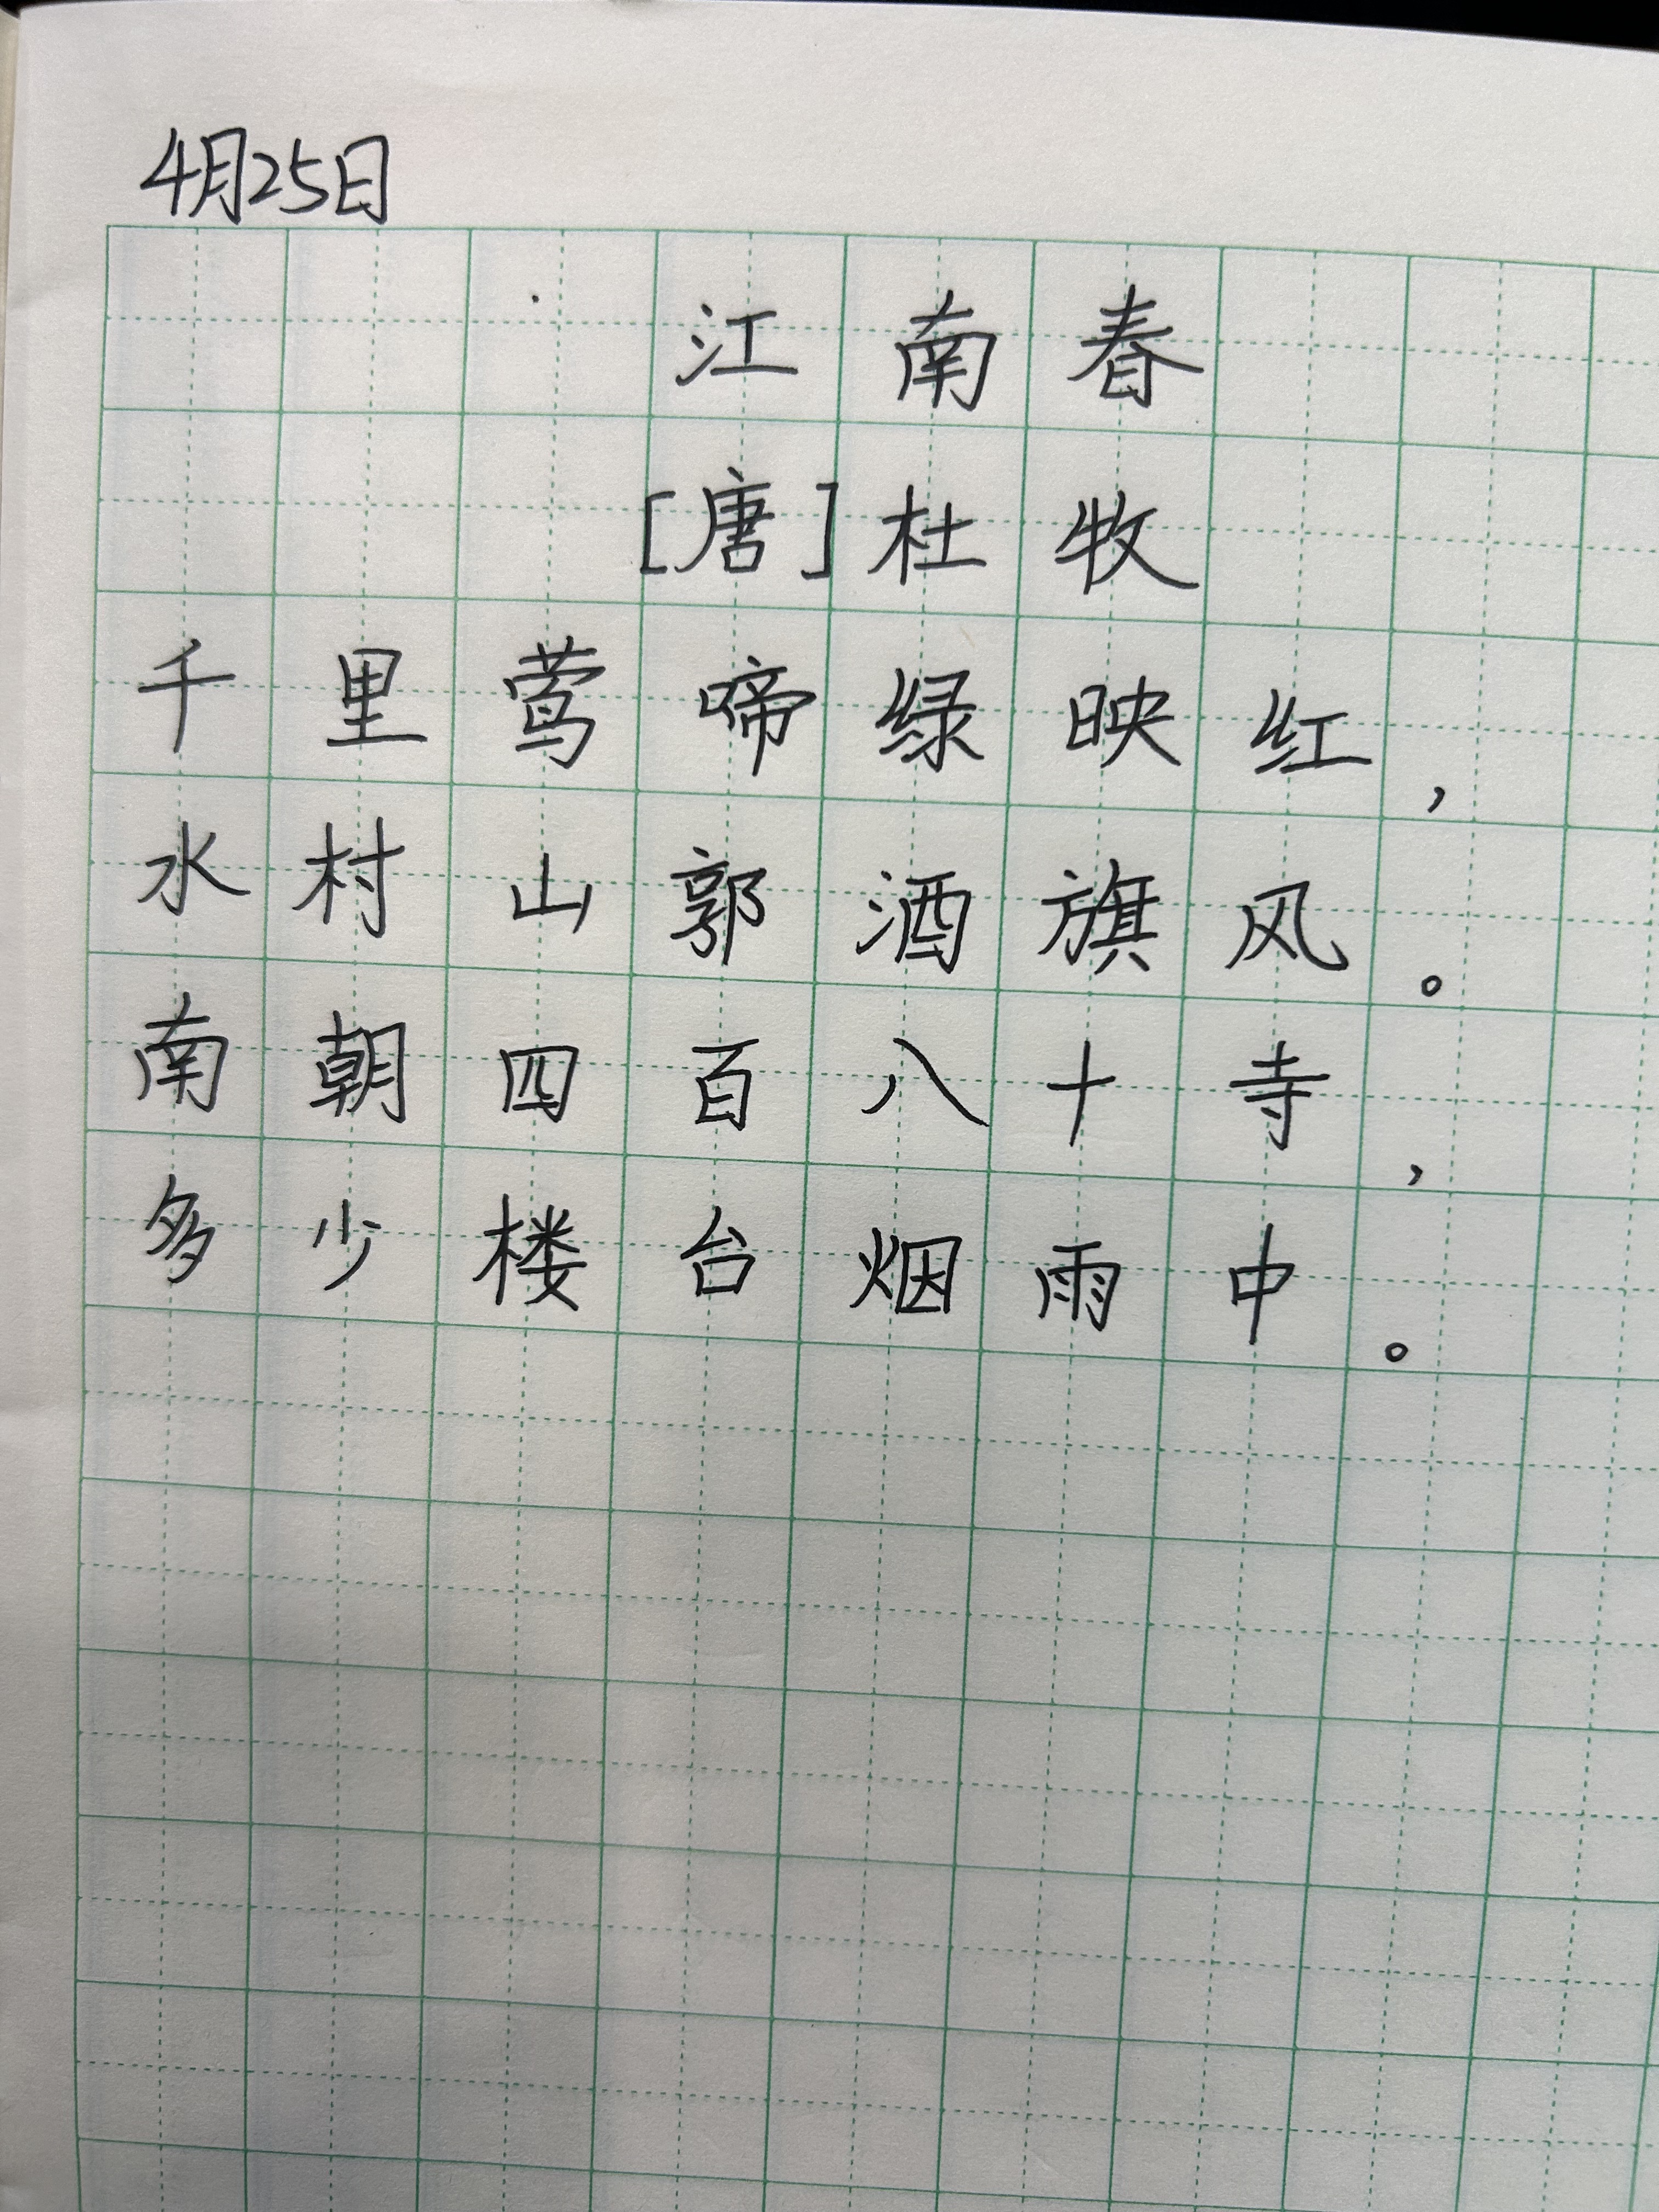 4月25日
江南春
[唐]杜牧
千里莺啼绿映红，
水村山郭酒旗风。
南朝四百八十寺，
多少楼台烟雨中。